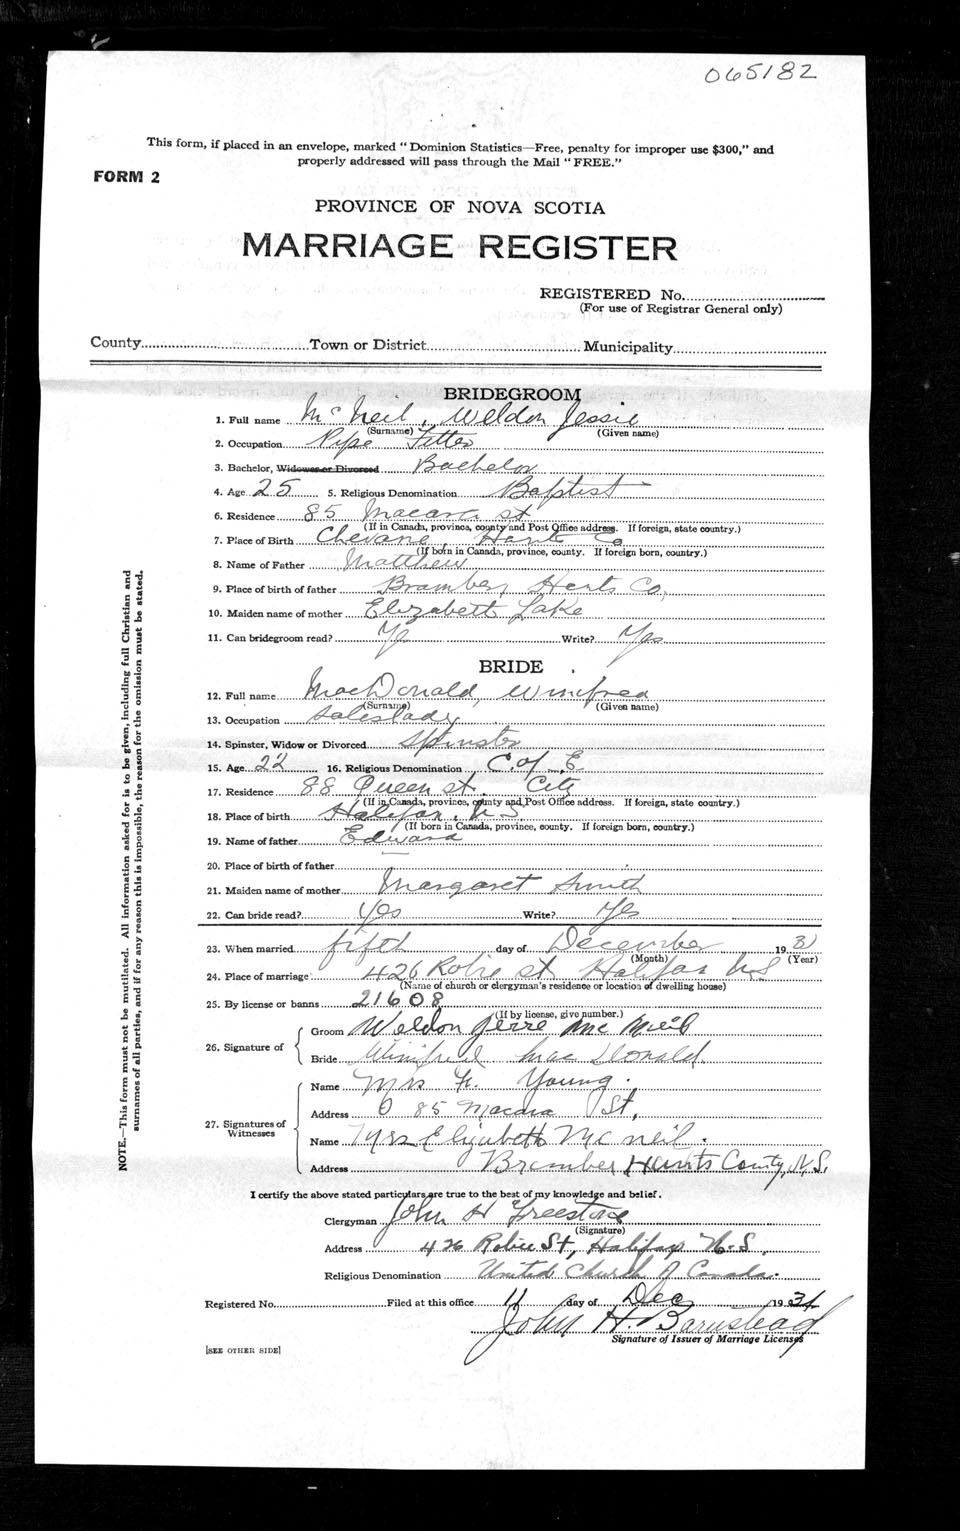 065182
This form, if placed in an envelope, marked "Dominion Statistics—Free, penalty for improper use $300," and
properly addressed will pass through the Mail "FREE."
FORM 2
PROVINCE OF NOVA SCOTIA
MARRIAGE REGISTER
REGISTERED No.
(For use of Registrar General only)
County Town or District Municipality
BRIDEGROOM
1. Full name McNeil, Weldon Jessie
(Surname) (Given name)
2. Occupation Pipe Fitter
3. Bachelor, Widower or Divorced Bachelor
4. Age 25 5. Religious Denomination Baptist
6. Residence 85 Macara st
(If in Canada, province, county and Post Office address. If foreign, state country.)
7. Place of Birth Hants Co
(If born in Canada, province, county. If foreign born, country.)
8. Name of Father Matthew
9. Place of birth of father Bramber, Hants Co,
10. Maiden name of mother Elizabeth Lake
11. Can bridegroom read? Yes Write? Yes
BRIDE
12. Full name MacDonald, Winifred
(Surname) (Given name)
13. Occupation saleslady
14. Spinster, Widow or Divorced Spinster
15. Age 22 16. Religious Denomination C. of E
17. Residence 88 Queen st. City
(If in Canada, province, county and Post Office address. If foreign, state country.)
18. Place of birth Halifax. N S
(If born in Canada, province, county. If foreign born, country.)
19. Name of father Edward
20. Place of birth of father —
21. Maiden name of mother Margaret Smith
22. Can bride read? Yes Write? Yes
23. When married fifth day of December 193
(Month) (Year)
24. Place of marriage 426 Robie st Halifax N S
(Name of church or clergyman's residence or location of dwelling house)
25. By license or banns 21608
(If by license, give number.)
26. Signature of
Groom Weldon Jesse McNeil
Bride Winifred Mac Donald.
27. Signatures of Witnesses
Name Mrs Young.
Address 85 Macara St,
Name Mrs Elizabeth McNeil.
Address Bramber Hants County, N.S.
I certify the above stated particulars are true to the best of my knowledge and belief.
Clergyman John H Freestone
(Signature)
Address 426 Robie St, Halifax N.S.
Religious Denomination United Church of Canada.
Registered No. Filed at this office 11 day of Dec 1931
John H. Barnstead
Signature of Issuer of Marriage Licenses
[SEE OTHER SIDE]
NOTE.—This form must not be mutilated. All information asked for is to be given, including full Christian and
surnames of all parties, and if for any reason this is impossible, the reason for the omission must be stated.